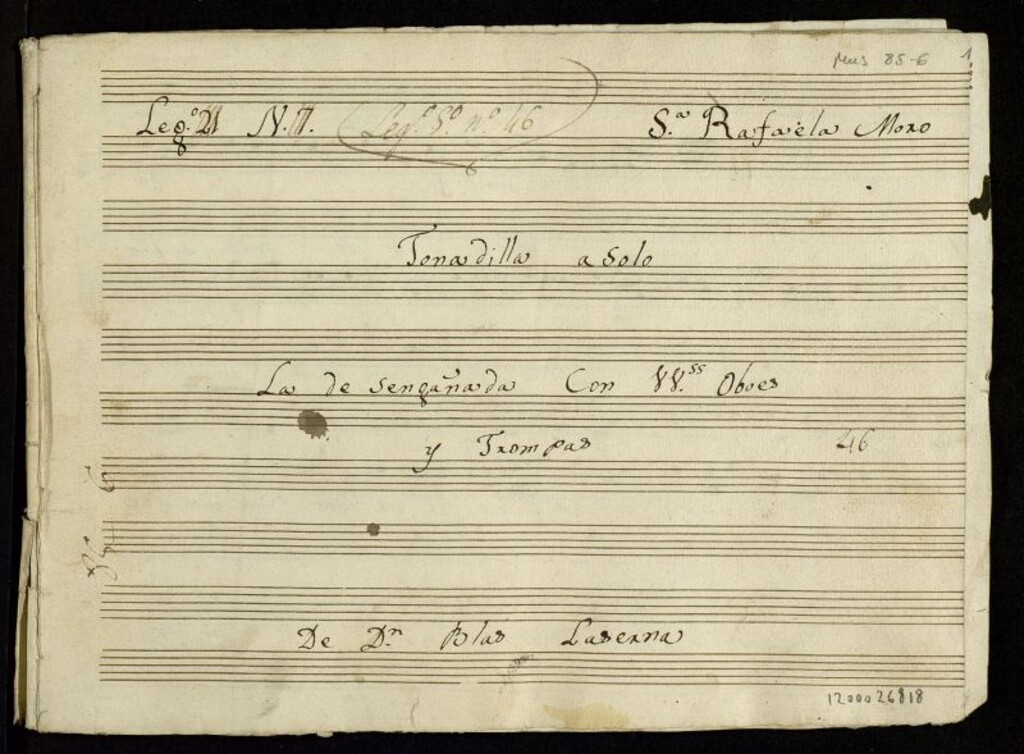 Mus 85-6 1
Leg.º 21 N. 11. Leg.º 5.º nº 46 S.ª Rafaela Moro
Tonadilla a Solo
La de sengañada Con VV.ss Oboes
y Trompas 46
De Dn. Blas Laserna
1200026818